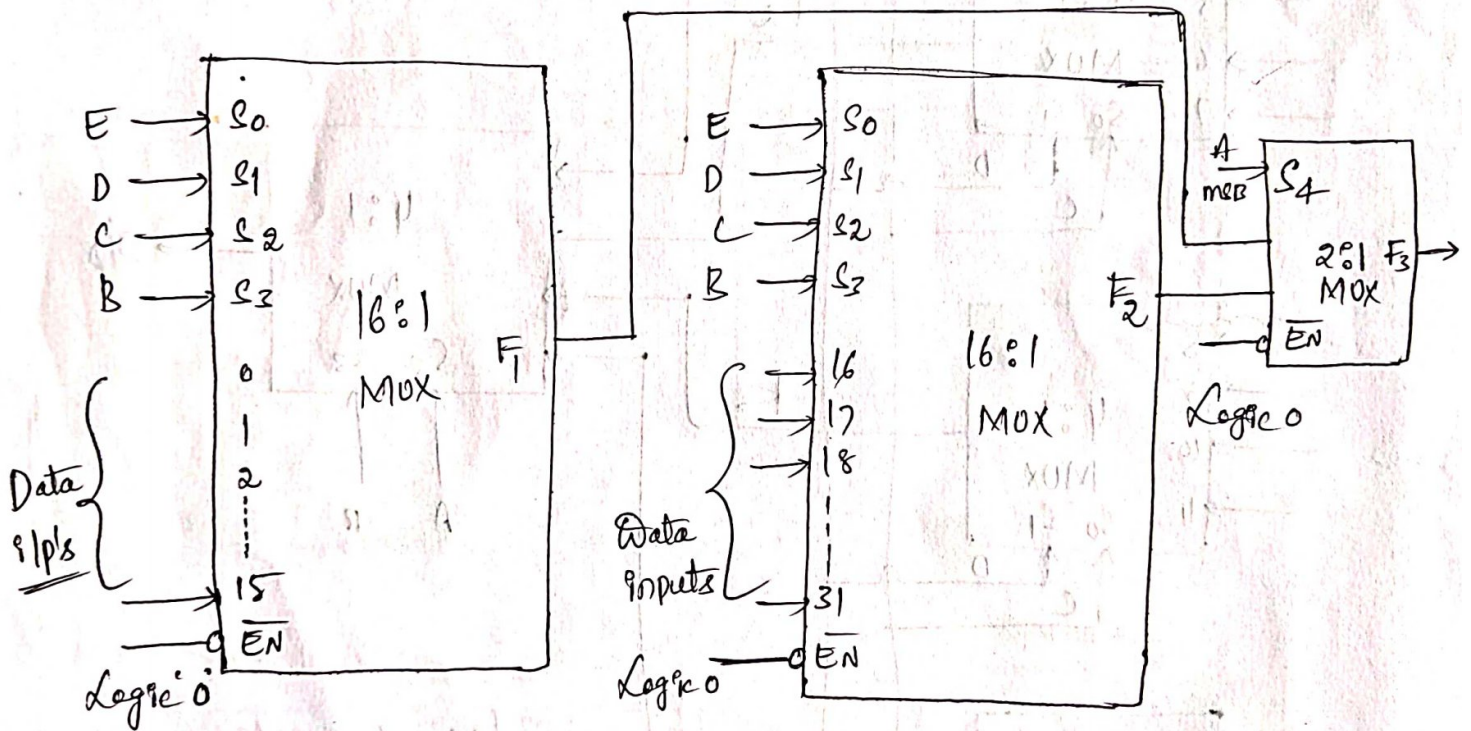 E S0
D S1
C S2
B S3
16:1
MUX
F1
0
1
2
15
Data
i/p's
EN
Logic '0'
E S0
D S1
C S2
B S3
16:1
MUX
F2
16
17
18
31
Data
inputs
EN
Logic 0
A
MSB
S4
2:1 F3
MUX
EN
Logic 0